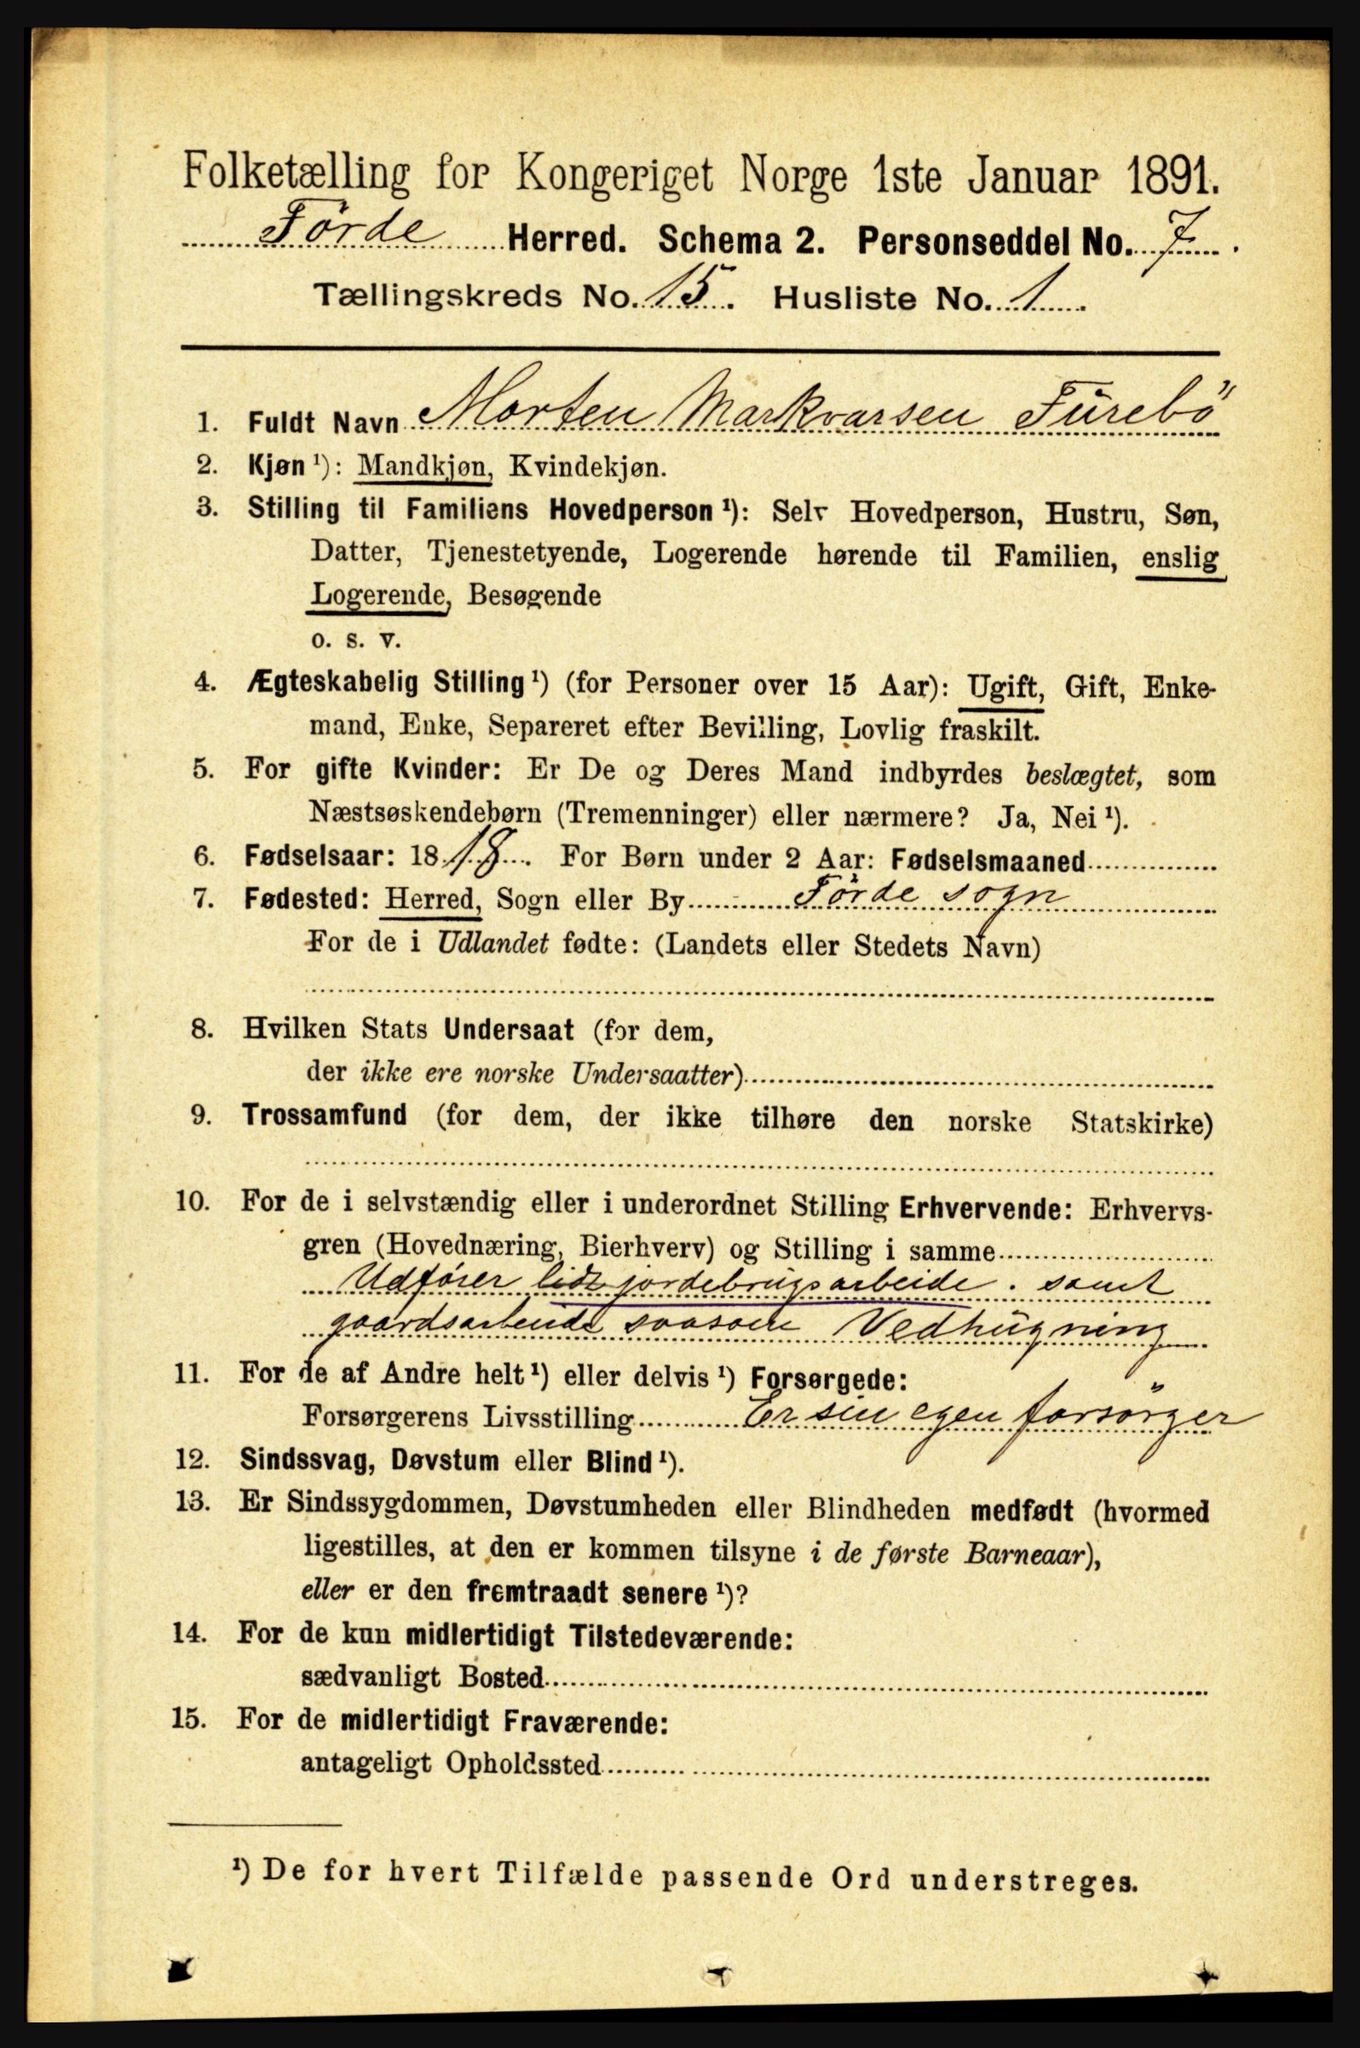 Folketælling for Kongeriget Norge 1ste Januar 1891.
Förde Herred. Schema 2. Personseddel No. 7.
Tællingskreds No. 15. Husliste No. 1.
1. Fuldt Navn Morten Markvarsen Fürebö
2. Kjøn ¹): Mandkjøn, Kvindekjøn.
3. Stilling til Familiens Hovedperson ¹): Selv Hovedperson, Hustru, Søn,
Datter, Tjenestetyende, Logerende hørende til Familien, enslig
Logerende, Besøgende
o. s. v.
4. Ægteskabelig Stilling ¹) (for Personer over 15 Aar): Ugift, Gift, Enke-
mand, Enke, Separeret efter Bevilling, Lovlig fraskilt.
5. For gifte Kvinder: Er De og Deres Mand indbyrdes beslægtet, som
Næstsøskendebørn (Tremenninger) eller nærmere? Ja, Nei ¹).
6. Fødselsaar: 1818. For Børn under 2 Aar: Fødselsmaaned
7. Fødested: Herred, Sogn eller By Förde sogn
For de i Udlandet fødte: (Landets eller Stedets Navn)
8. Hvilken Stats Undersaat (for dem,
der ikke ere norske Undersaatter)
9. Trossamfund (for dem, der ikke tilhøre den norske Statskirke)
10. For de i selvstændig eller i underordnet Stilling Erhvervende: Erhvervs-
gren (Hovednæring, Bierhverv) og Stilling i samme
Udfører lidt jordebrugsarbeide. samt
gaardsarbeide saasom Vedhügning
11. For de af Andre helt ¹) eller delvis ¹) Forsørgede:
Forsørgerens Livsstilling Er sin egen forsörger
12. Sindssvag, Døvstum eller Blind ¹).
13. Er Sindssygdommen, Døvstumheden eller Blindheden medfødt (hvormed
ligestilles, at den er kommen tilsyne i de første Barneaar),
eller er den fremtraadt senere ¹)?
14. For de kun midlertidigt Tilstedeværende:
sædvanligt Bosted
15. For de midlertidigt Fraværende:
antageligt Opholdssted
¹) De for hvert Tilfælde passende Ord understreges.